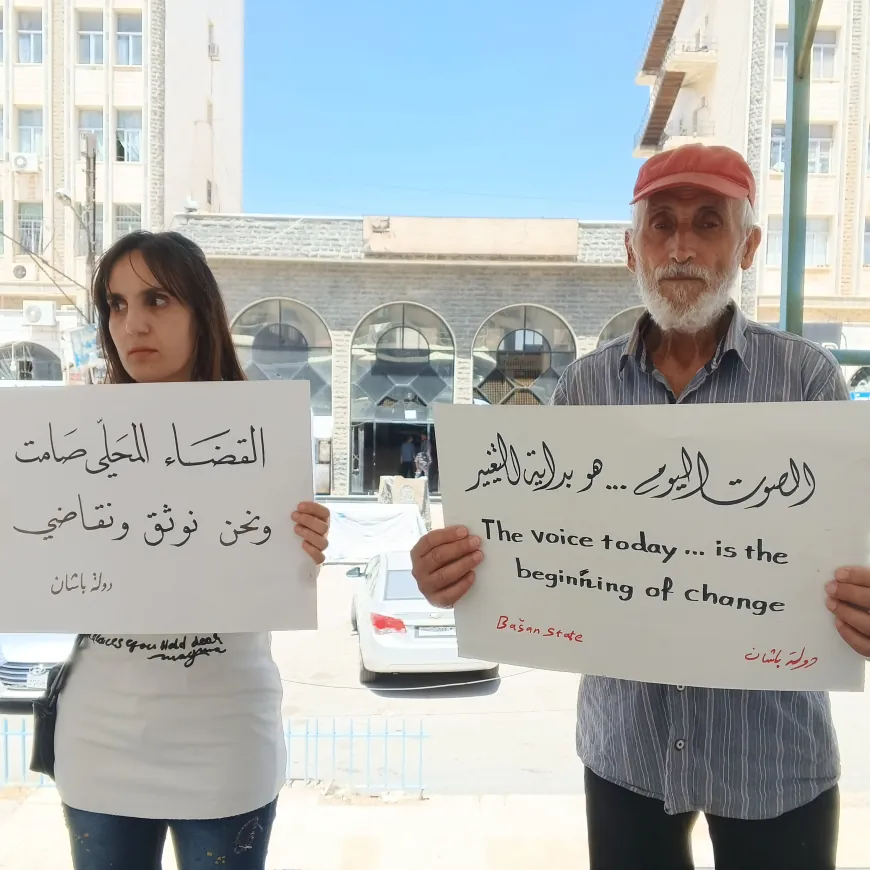 القضَاء المحَلّي صَامت
ونحن نوثق ونقاضي
دولة باشان
places you Hold dear
الصوت اليوم ... هو بداية التغيير
The voice today ... is the
beginning of change
Bašan State
دولة باشان